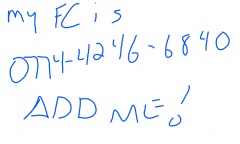 my FC is
0774-4246-6840
ADD ME!